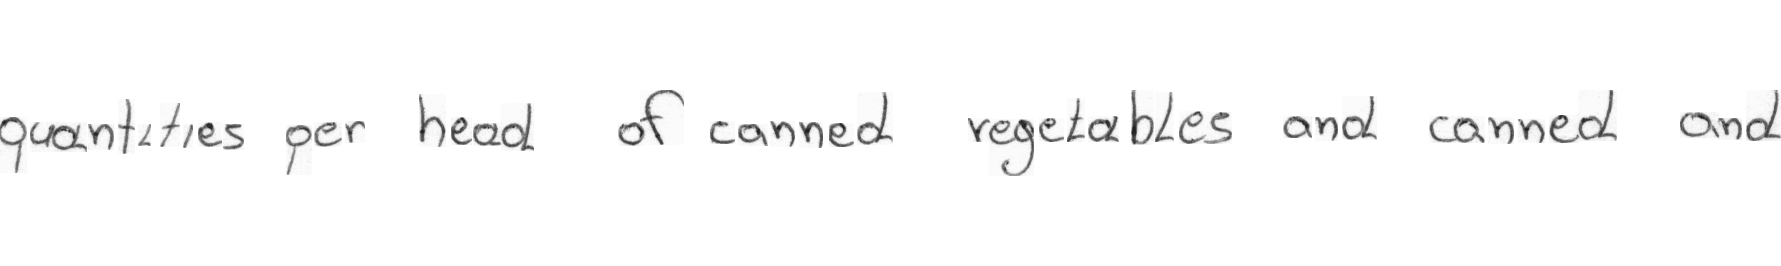 quantities per head of canned vegetables and canned and